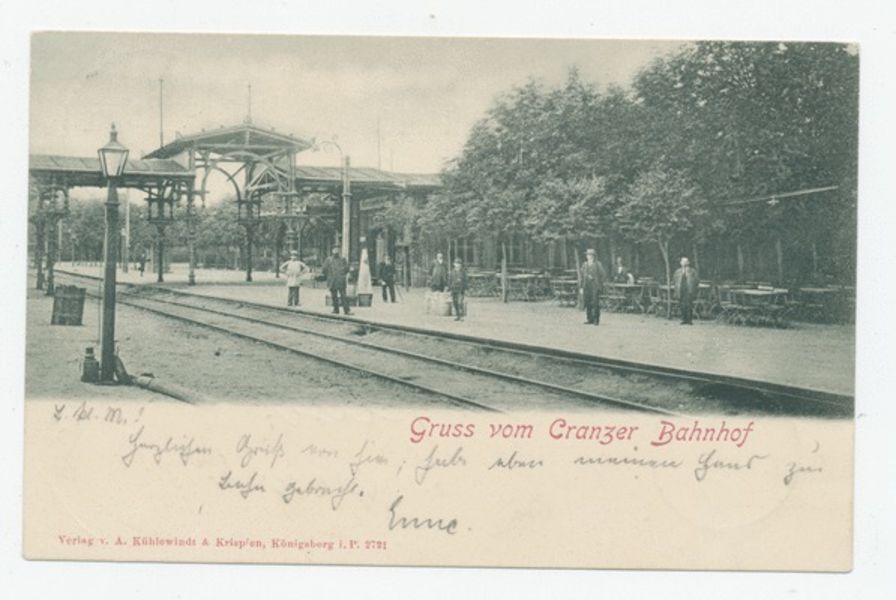 Gruss vom Cranzer Bahnhof
L. Kl. M.!
Herzlichen Gruß von hier, habe eben meinen Hans zur
Bahn gebracht.
Verlag v. A. Kühlewindt & Krispien, Königsberg i. P. 2721